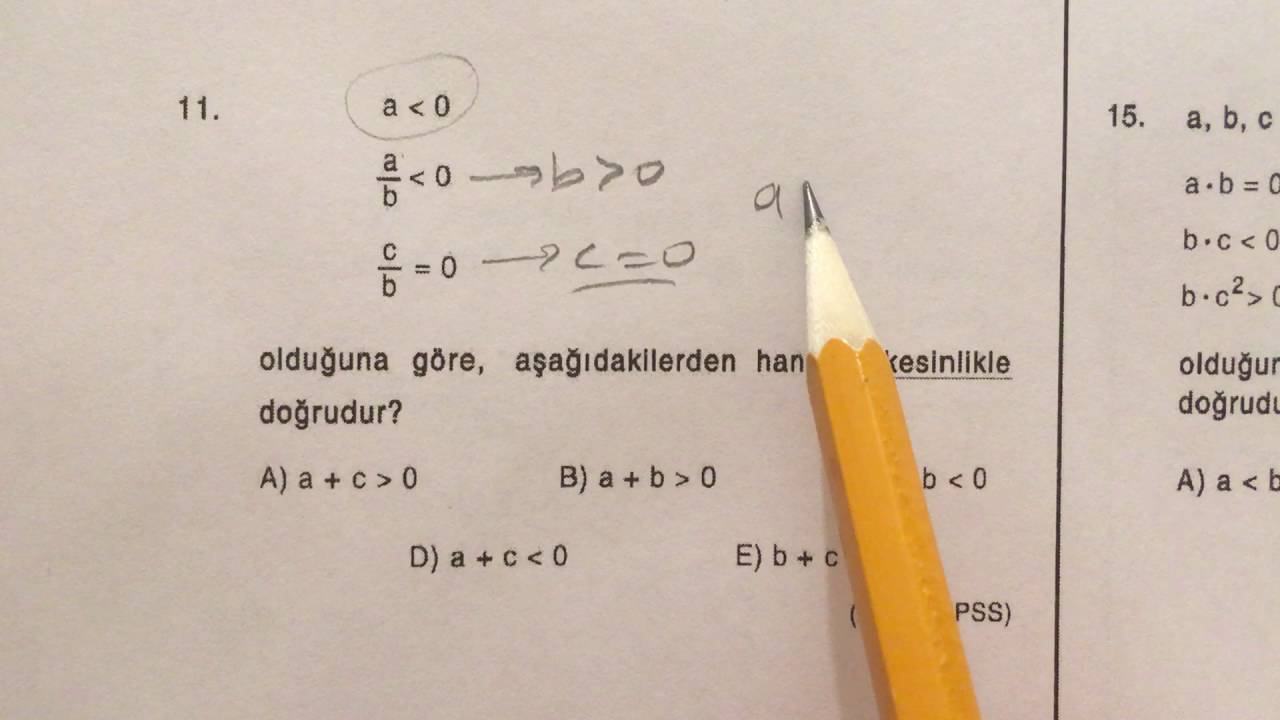 11. a < 0
a/b < 0 → b > 0
a
c/b = 0 → c = 0
olduğuna göre, aşağıdakilerden kesinlikle
doğrudur?
A) a + c > 0 B) a + b > 0 b < 0
D) a + c < 0 E) b + c
PSS)
15. a, b, c
a · b = 0
b · c < 0
b · c² >
doğrudu
A) a < b